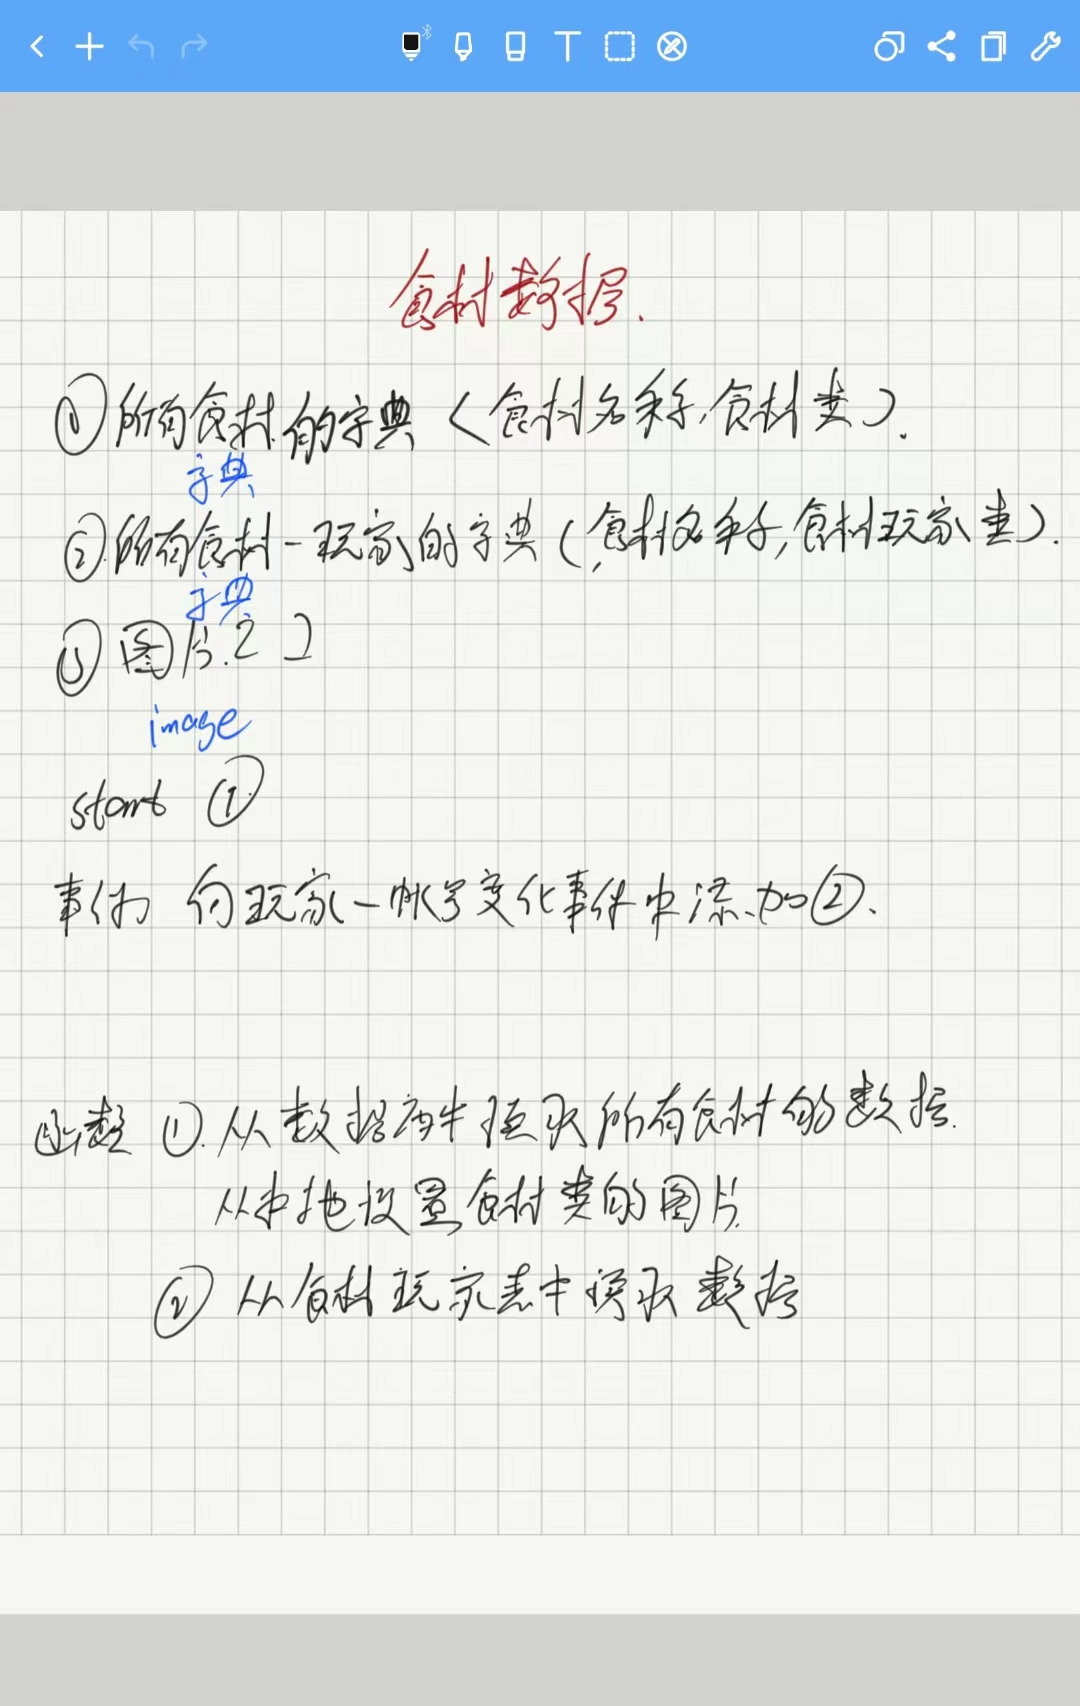 食材数据.
① 所有食材的字典 (食材名称,食材类).
字典
② 所有食材-玩家的字典 (食材名称,食材玩家类).
字典
③ 图片.[]
image
start ①
事件 向玩家-帐号变化事件中添加②.
函数 ①. 从数据库中获取所有食材的数据.
从本地设置食材类的图片.
② 从食材玩家表中获取数据